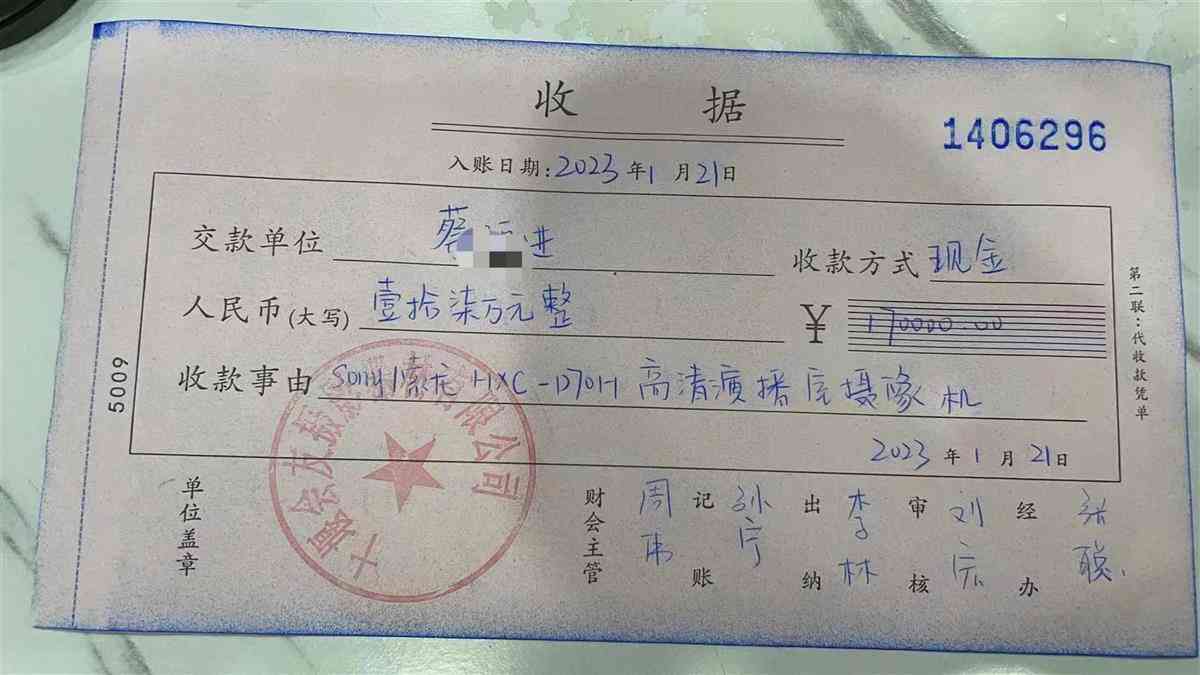 收 据
1406296
入账日期:2023年1月21日
交款单位 蔡 进 收款方式 现金
人民币(大写) 壹拾柒万元整 ¥ 170000.00
收款事由 Sony/索尼 HXC-D70H 高清演播室摄像机
2023年1月21日
单位盖章 财会主管 周伟 记账 孙宁 出纳 李林 审核 刘宏 经办 张聪
第二联:代收款凭单
5009
有限公司